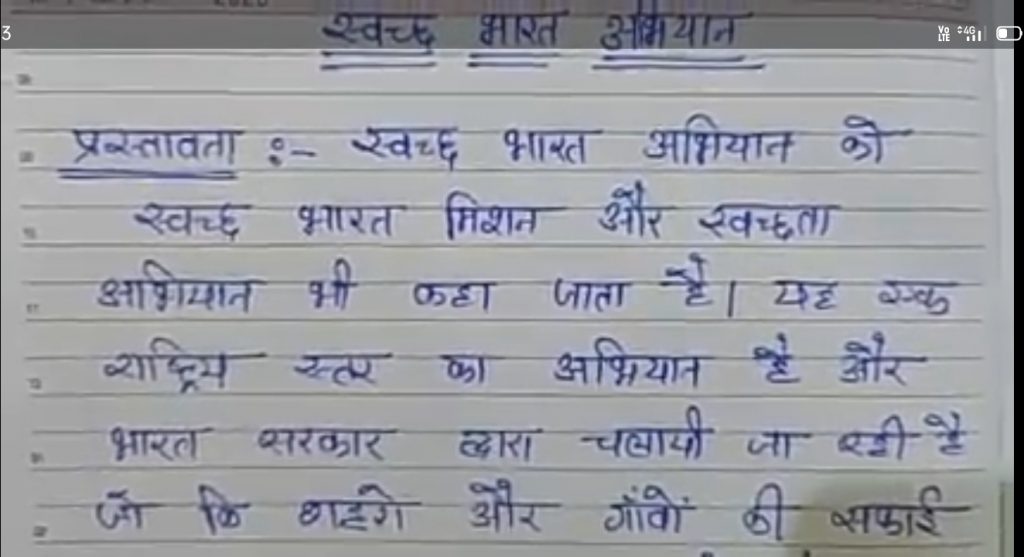 स्वच्छ भारत अभियान
प्रस्तावना :- स्वच्छ भारत अभियान को
स्वच्छ भारत मिशन और स्वच्छता
अभियान भी कहा जाता है। यह एक
राष्ट्रिय स्तर का अभियान है और
भारत सरकार द्वारा चलायी जा रही है
जो कि शहरों और गाँवों की सफाई